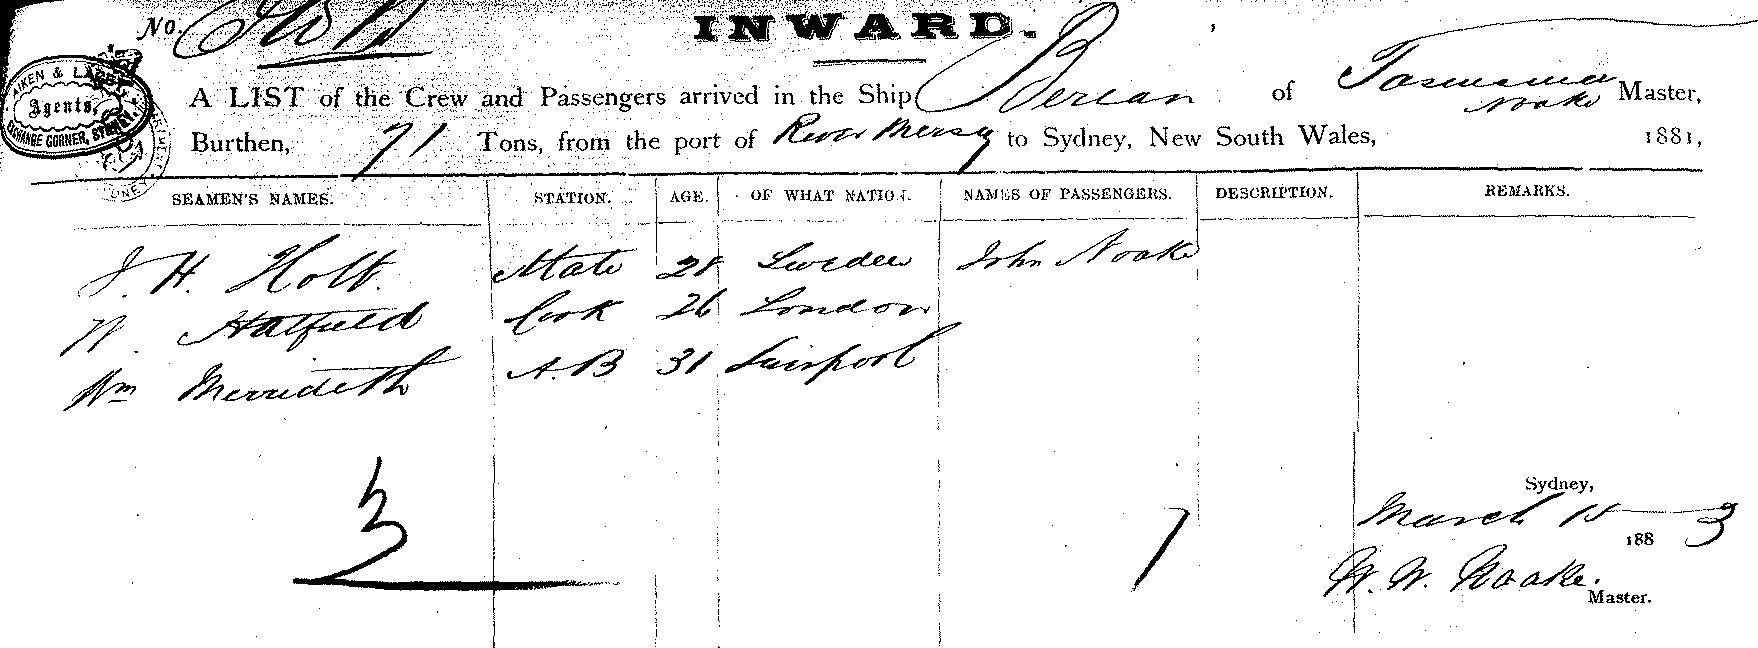 No.
INWARD.
AIKEN & LABE
Agents,
EXCHANGE CORNER, SYDNEY.
A LIST of the Crew and Passengers arrived in the Ship Berean of Tasmania Noake Master,
Burthen, 71 Tons, from the port of River Mersey to Sydney, New South Wales, 1881,
SEAMEN'S NAMES. STATION. AGE. OF WHAT NATION. NAMES OF PASSENGERS. DESCRIPTION. REMARKS.
J. H. Holt. Mate 28 Sweden John Noake
W. Hatfield Cook 26 London
Wm Merrideth A.B 31 Liverpool
3 1
Sydney,
March 15 1883
W. W. Noake.
Master.